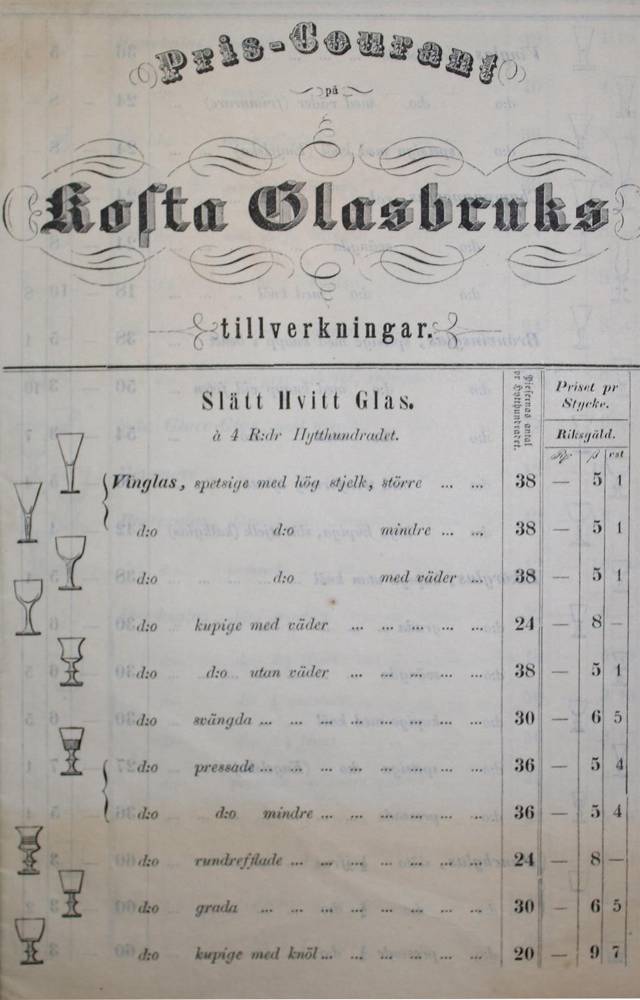 Pris-Courant
på
Kosta Glasbruks
tillverkningar.
Slätt Hvitt Glas.
à 4 R:dr Hytthundradet.
Pjesernas antal
pr Hytthundradet.
Priset pr
Stycke.
Riksgäld.
R/. ß rst.
Vinglas, spetsige med hög stjelk, större ... ... 38 — 5 1
d:o d:o mindre ... ... 38 — 5 1
d:o d:o med väder ... 38 — 5 1
d:o kupige med väder ... ... ... ... ... 24 — 8 —
d:o d:o utan väder ... ... ... ... ... 38 — 5 1
d:o svängda ... ... ... ... ... ... ... ... 30 — 6 5
d:o pressade ... ... ... ... ... ... ... ... 36 — 5 4
d:o d:o mindre ... ... ... ... ... ... 36 — 5 4
d:o rundrefflade ... ... ... ... ... ... ... 24 — 8 —
d:o grada ... ... ... ... ... ... ... ... 30 — 6 5
d:o kupige med knöl ... ... ... ... ... ... 20 — 9 7